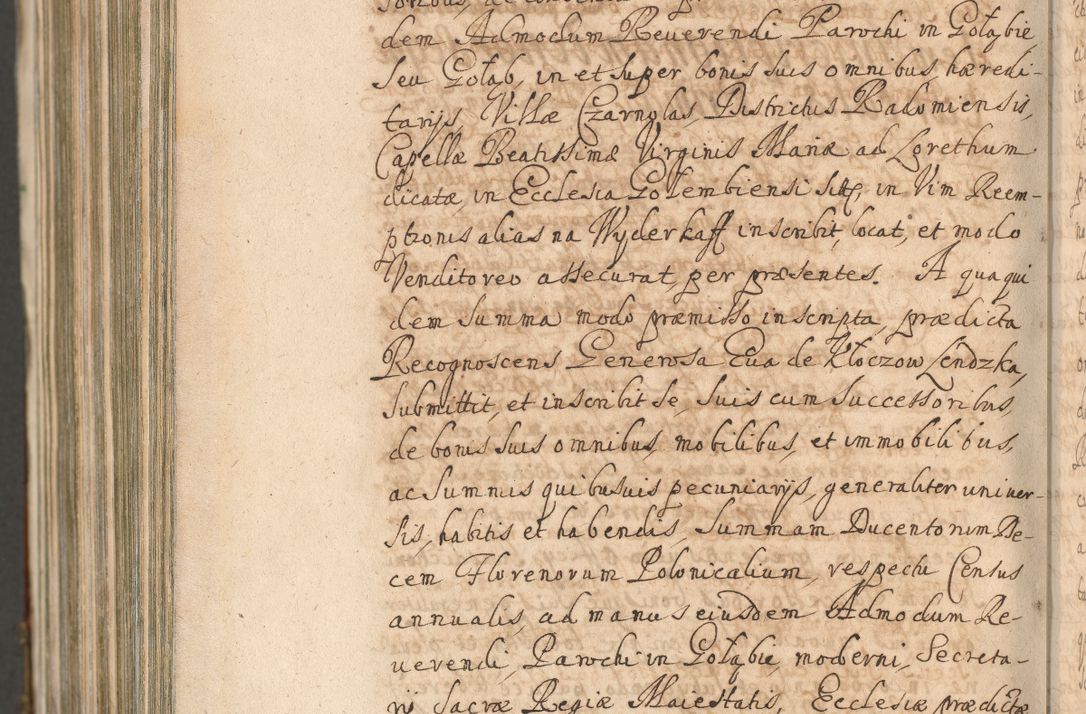 dem Admodum Reuerendi Parochi in Gołąbie,
seu Gołąb, in et super bonis suis omnibus, hæredi-
tarijs, Villæ Czarnolas, Districtus Radomiensis,
Capellæ Beatissimæ Virginis Mariæ ad Lorethum
dicatæ, in Ecclesia Gołembiensi sitæ, in Vim Reem-
ptionis alias na Wyderkaff inscribit, locat, et modo
Venditoreo assecurat, per præsentes. A qua qui
dem Summa modo præmisso inscripta, prædicta
Recognoscens Generosa Eua de Kłoczow Lendzka,
Submittit, et inscribit se, suis cum Successoribus,
de bonis suis omnibus, mobilibus, et immobilibus,
ac Summis quibusuis pecuniarijs, generaliter uniuer-
sis, habitis et habendis, Summam Ducentorum De-
cem Florenorum Polonicalium, respectu Census
annualis, ad manus eiusdem Admodum Re-
uerendi, Parochi in Gołąbie, moderni, Secreta-
rij Sacræ Regiæ Maiestatis, Ecclesiæ prædictæ